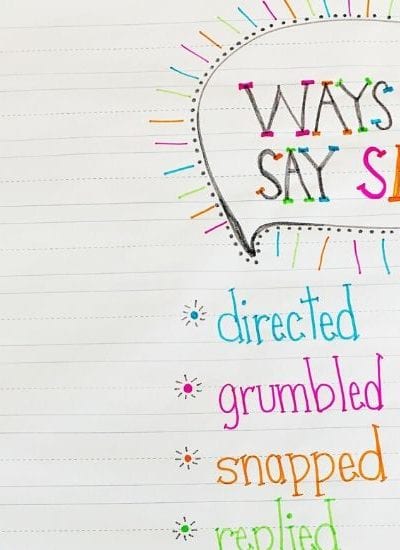 WAYS
SAY
directed
grumbled
snapped
replied